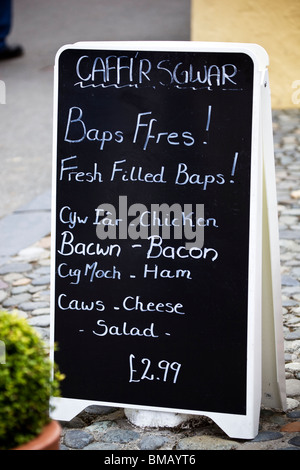 CAFFI'R SGWAR
Baps Ffres!
Fresh Filled Baps!
Cyw Iâr - Chicken
Bacwn - Bacon
Cig Moch - Ham
Caws - Cheese
- Salad -
£2.99
alamy
Image ID: BMAYT6
www.alamy.com